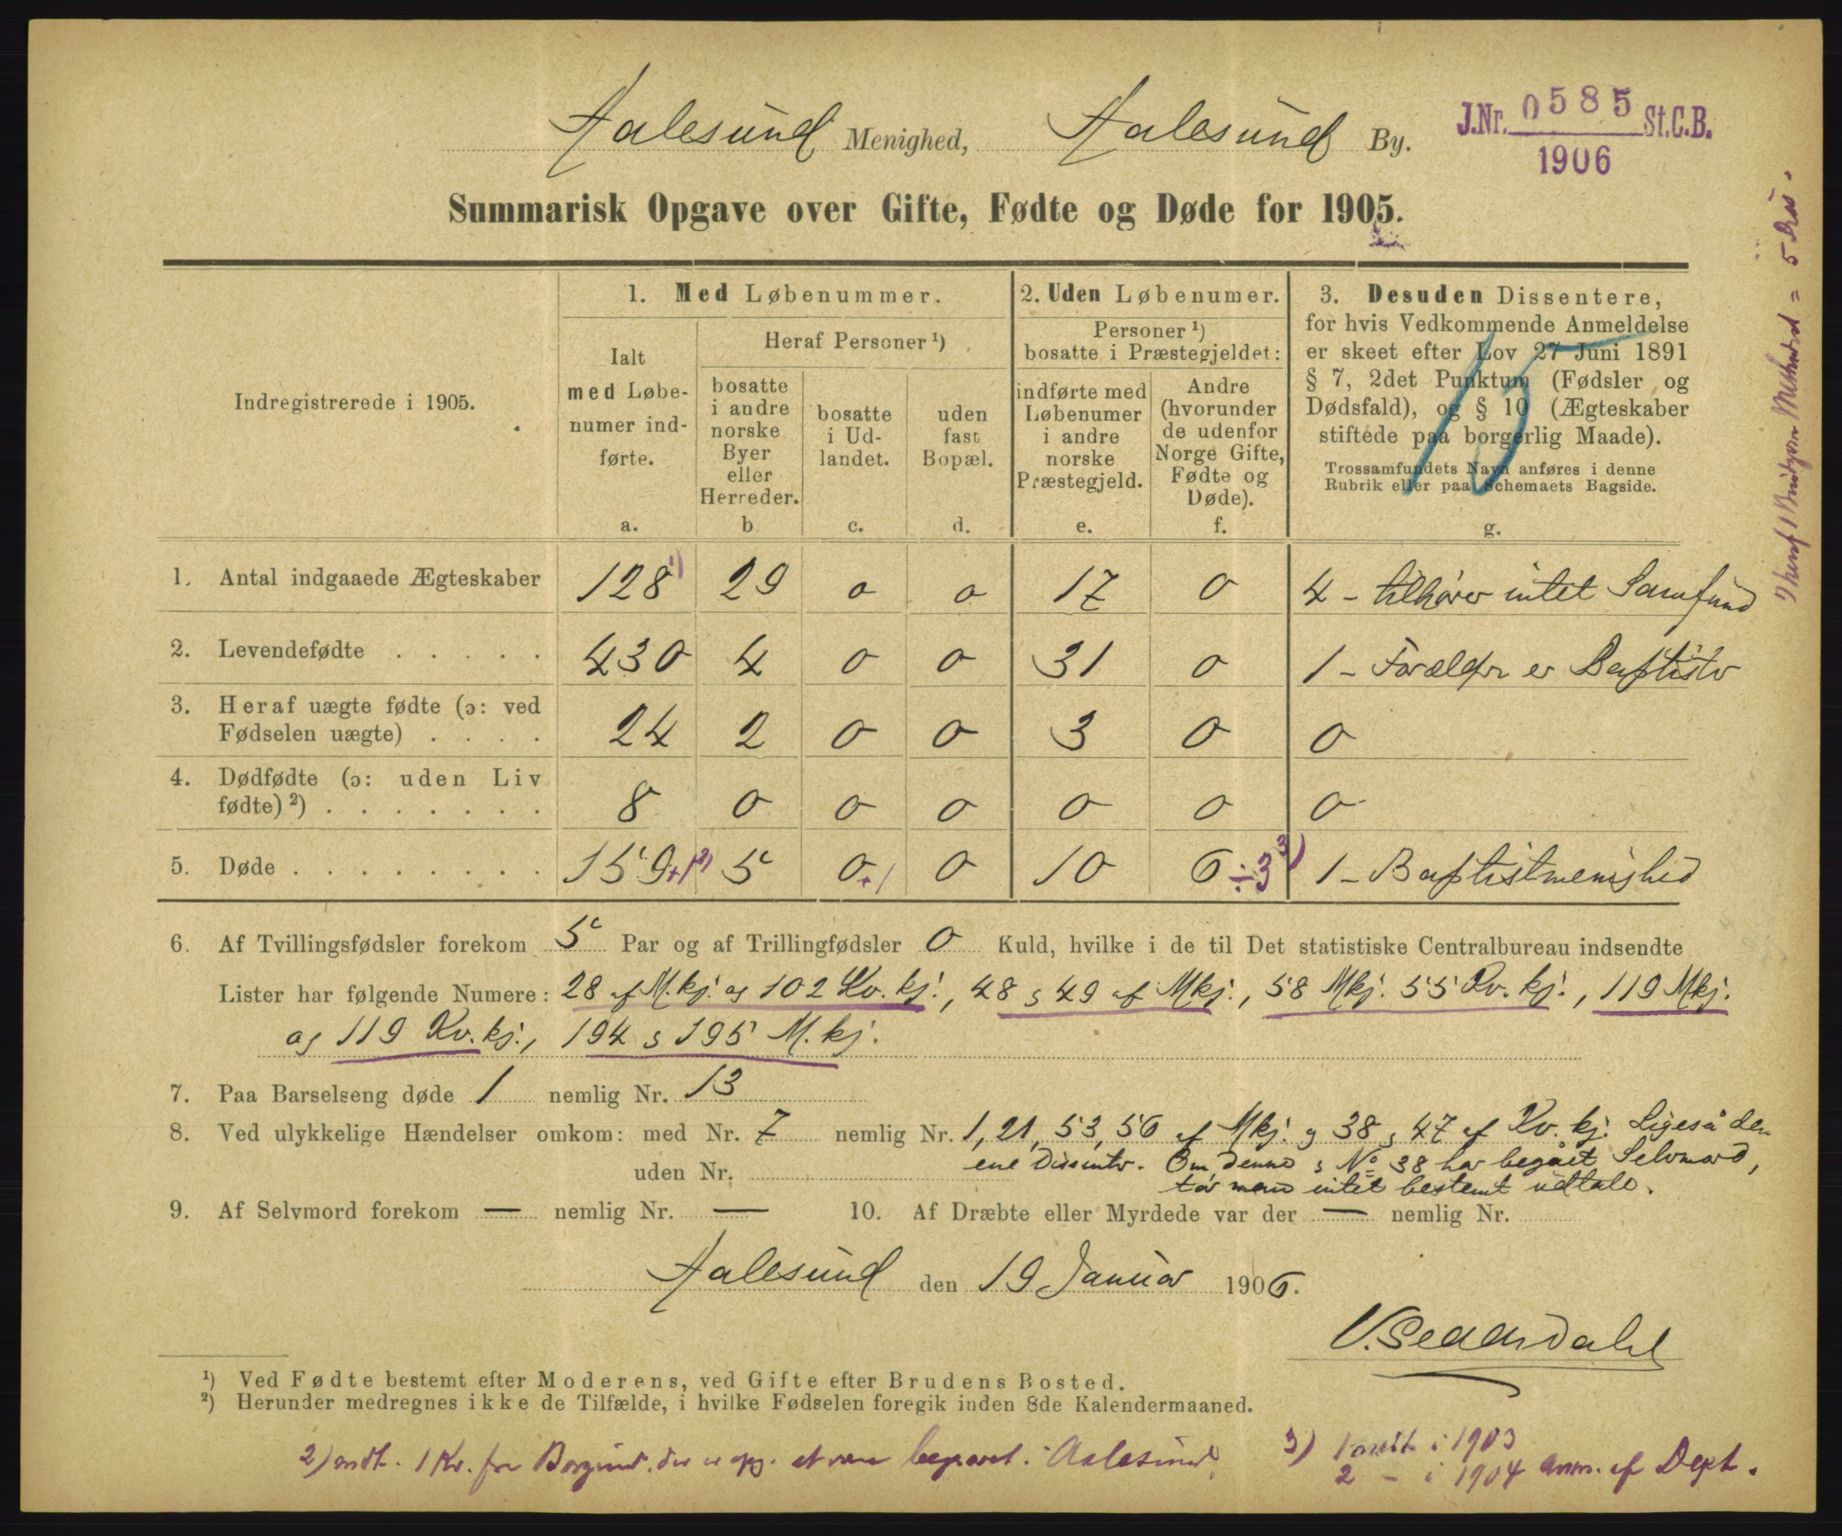 Aalesund Menighed, Aalesund By.
J.Nr. 0585 St.C.B.
1906
Summarisk Opgave over Gifte, Fødte og Døde for 1905.
Indregistrerede i 1905.
1. Med Løbenummer.
Ialt
med Løbe-
numer ind-
førte.
a.
Heraf Personer ¹)
bosatte
i andre
norske
Byer
eller
Herreder.
b
bosatte
i Ud-
landet.
c.
uden
fast
Bopæl.
d.
2. Uden Løbenumer.
Personer ¹)
bosatte i Præstegjeldet:
indførte med
Løbenumer
i andre
norske
Præstegjeld.
e.
Andre
(hvorunder
de udenfor
Norge Gifte,
Fødte og
Døde).
f.
3. Desuden Dissentere,
for hvis Vedkommende Anmeldelse
er skeet efter Lov 27 Juni 1891
§ 7, 2det Punktum (Fødsler og
Dødsfald), og § 10 (Ægteskaber
stiftede paa borgerlig Maade).
Trossamfundets Navn anføres i denne
Rubrik eller paa Schemaets Bagside.
g.
1. Antal indgaaede Ægteskaber 128 ¹) 29 0 0 17 0 4 - tilhører intet Samfund
2. Levendefødte . . . . . 430 4 0 0 31 0 1 - Forældre er Baptister
3. Heraf uægte fødte (ɔ: ved
Fødselen uægte) . . . . 24 2 0 0 3 0 0
4. Dødfødte (ɔ: uden Liv
fødte) ²) . . . . . . . 8 0 0 0 0 0 0
5. Døde . . . . . . . . . 159 +1 ²) 5 0 +1 0 10 6 ÷3 ³) 1 - Baptistmenighed
6. Af Tvillingsfødsler forekom 5 Par og af Trillingfødsler 0 Kuld, hvilke i de til Det statistiske Centralbureau indsendte
Lister har følgende Numere: 28 af M.kj. og 102 Kv. kj., 48 & 49 af Mkj., 58 Mkj. 55 Kv. kj., 119 Mkj.
og 119 Kv. kj., 194 & 195 M. kj.
7. Paa Barselseng døde 1 nemlig Nr. 13
8. Ved ulykkelige Hændelser omkom: med Nr. 7 nemlig Nr. 1, 21, 53, 56 af Mkj. & 38 & 47 af Kv. kj. Ligeså den
ene Dissenter. Om denne & No 38 har begået Selvmord,
uden Nr.
tør man intet bestemt udtale.
9. Af Selvmord forekom — nemlig Nr. — 10. Af Dræbte eller Myrdede var der — nemlig Nr.
Aalesund den 19 Januar 1906.
¹) Ved Fødte bestemt efter Moderens, ved Gifte efter Brudens Bosted.
²) Herunder medregnes ikke de Tilfælde, i hvilke Fødselen foregik inden 8de Kalendermaaned.
2) 1 Kv. fra Borgund, der er opg. at være begravet i Aalesund.
3) 1 i 1903
2 - i 1904 anm. af Dept.